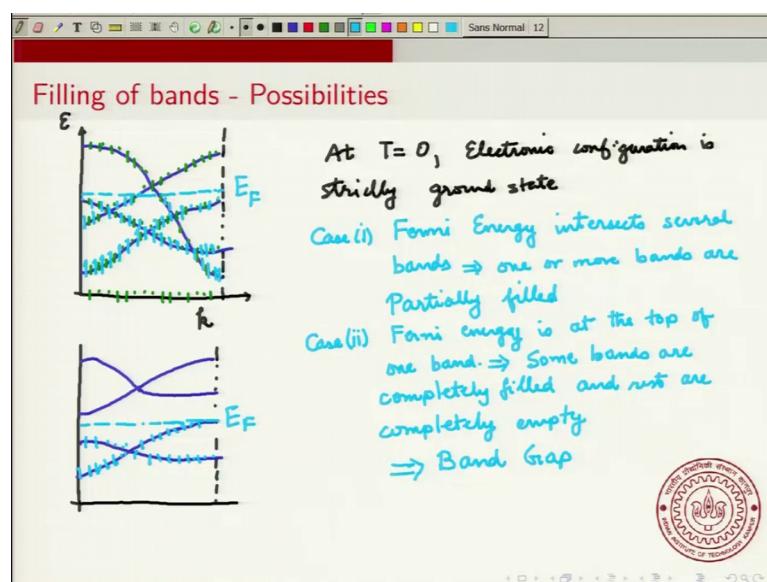 Sans Normal 12
Filling of bands - Possibilities
ε
E_F
k
At T=0, Electronic configuration is
strictly ground state
Case(i) Fermi Energy intersects several
bands ⇒ one or more bands are
Partially filled
Case(ii) Fermi energy is at the top of
one band. ⇒ Some bands are
completely filled and rest are
completely empty
⇒ Band Gap
E_F
INDIAN INSTITUTE OF TECHNOLOGY KANPUR